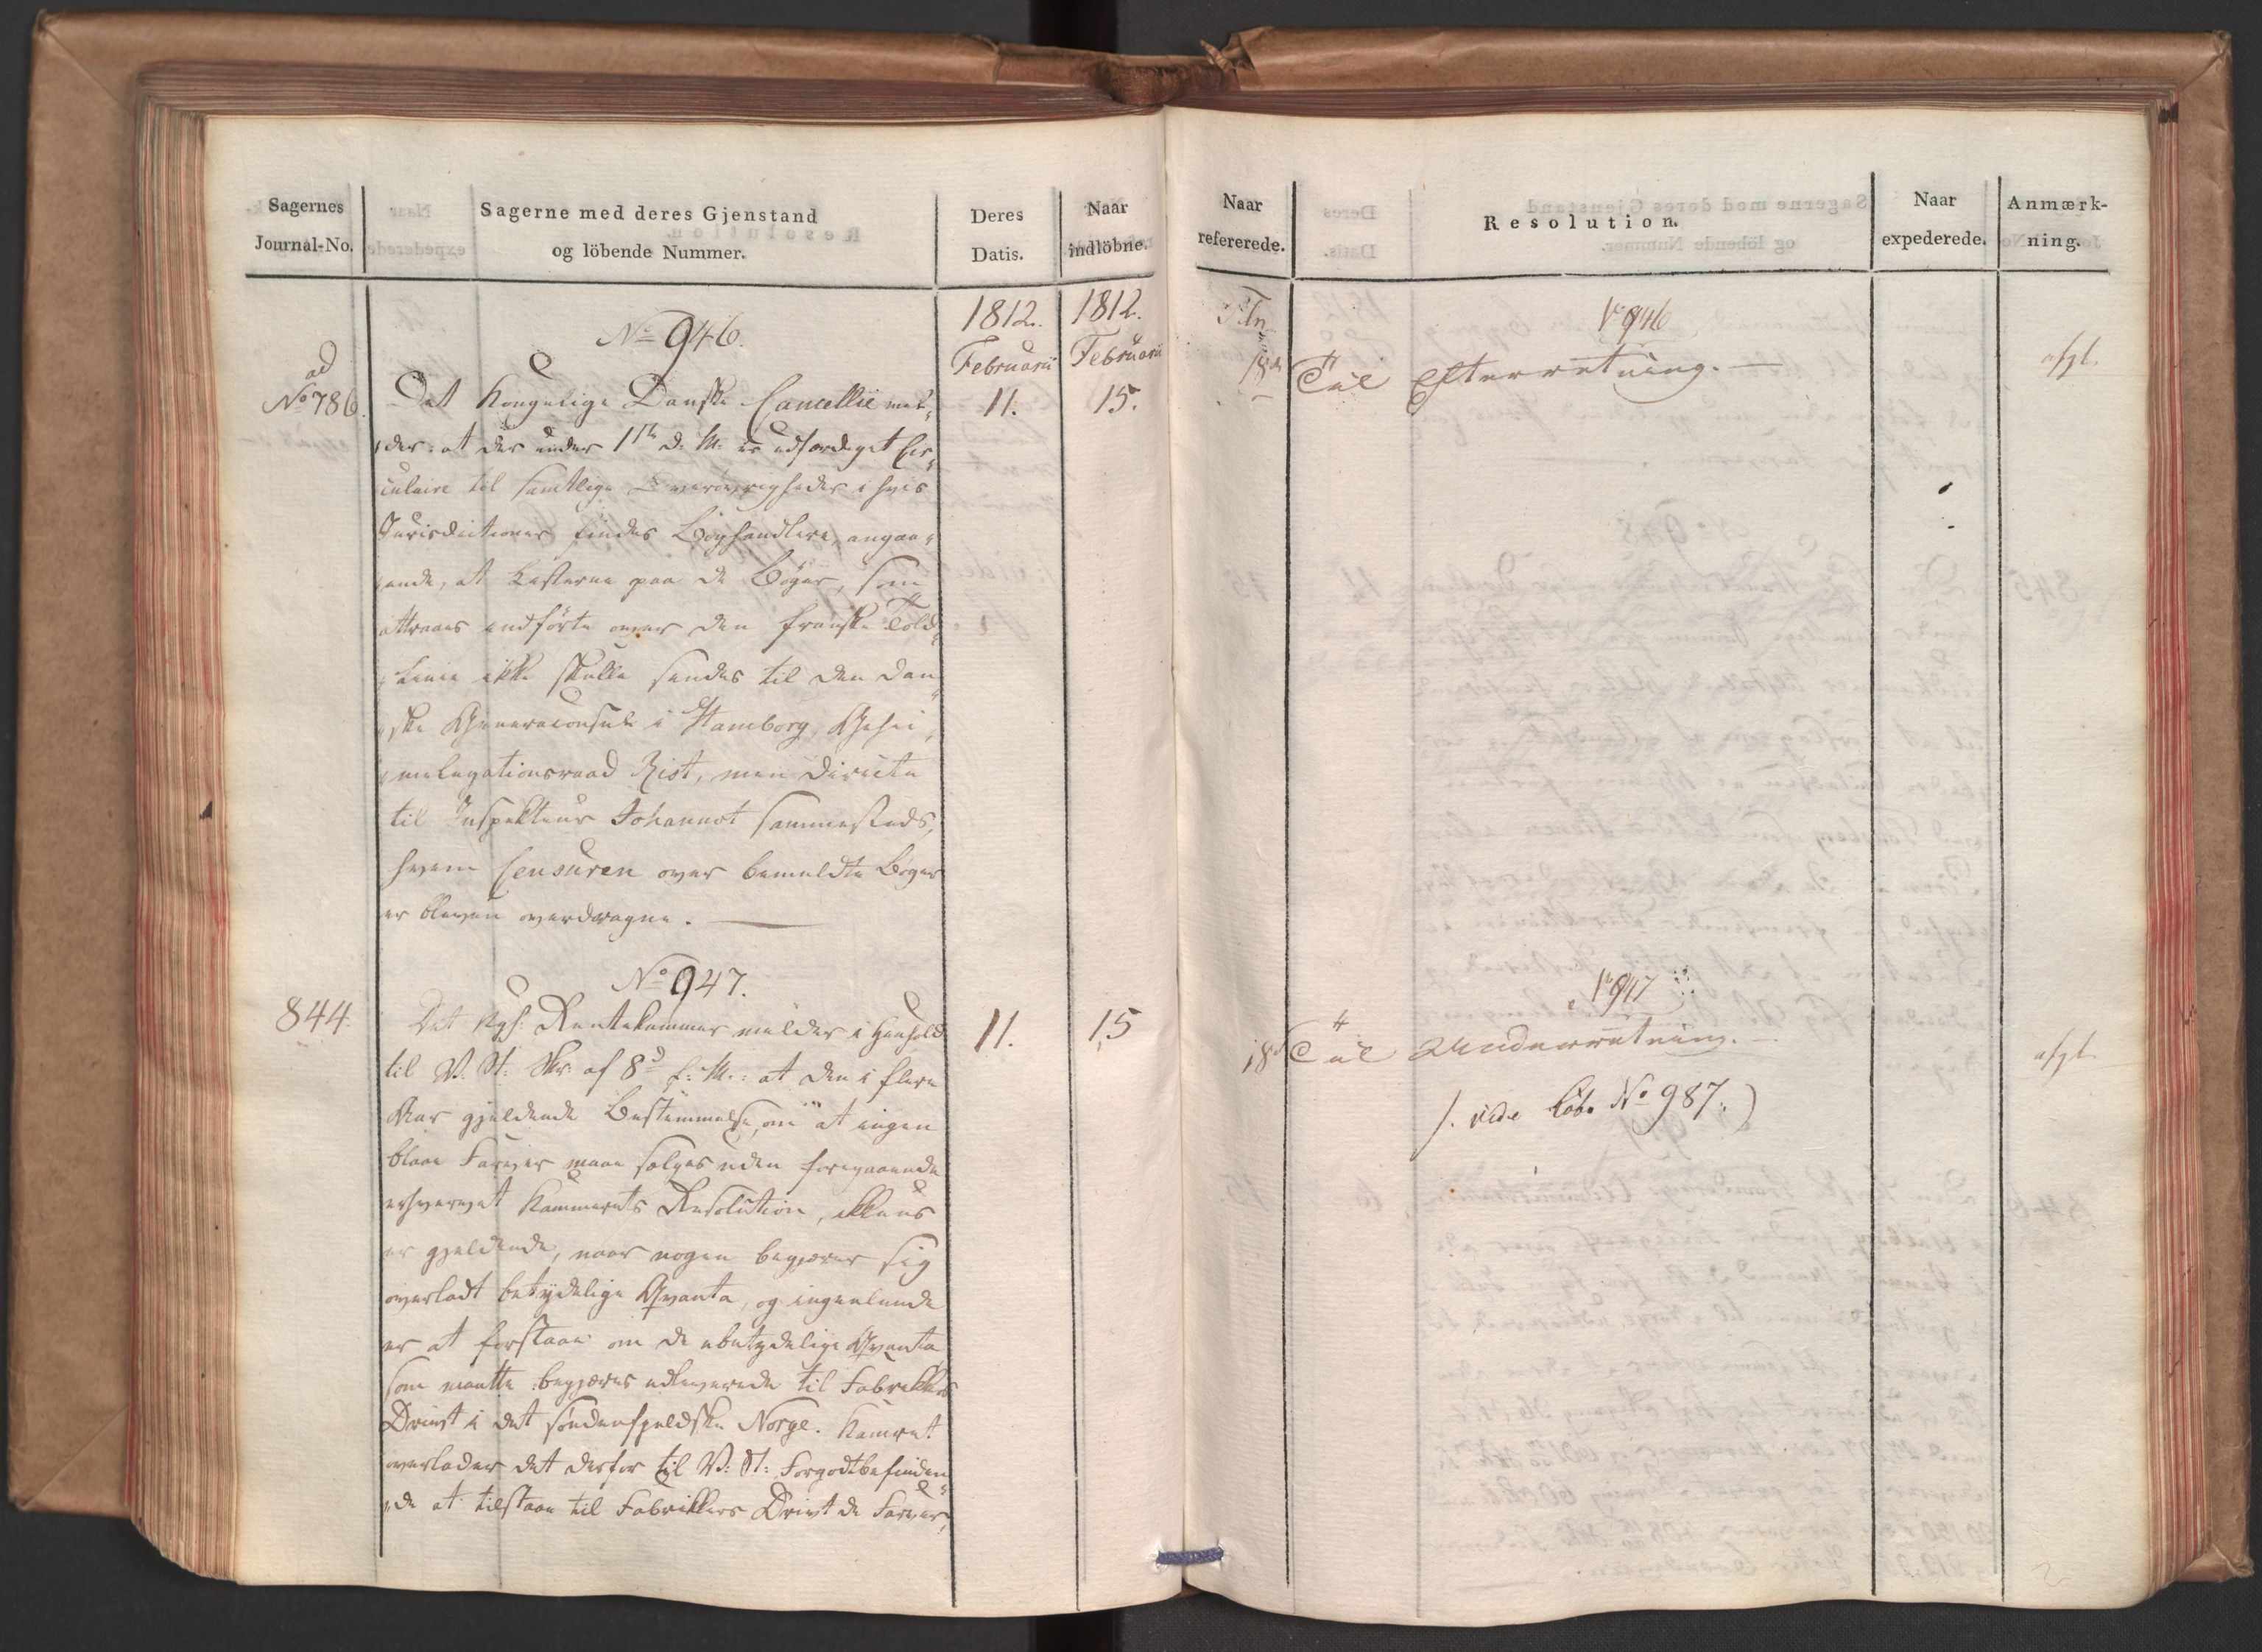 Sagernes
Journal-No.
Sagerne med deres Gjenstand
og löbende Nummer.
Deres
Datis.
Naar
indlöbne.
1812.
Februarii
1812.
Februarii
No 946.
ad
No 786.
Det Kongelige Danske Cancellie mel-
der: at der under 1ste d: M: er udfærdiget Cir-
culaire til samtlige Overøvrigheder i hvis
Jurisdictioner findes Boghandlere, angaa-
ende, at Listerne paa de Bøger, som
attraaes indførte over den franske Told-
Linie ikke skulle sendes til den Dan-
ske Generalconsul i Hamborg, Gehei-
melegationsraad Rist, men directe
til Inspekteur Johannot sammesteds,
hvem Censuren over bemeldte Bøger
er bleven overdragne.
11.
15.
No 947.
844.
Det Kgl: Rentekammer melder i Henhold
til V: St: Skr: af 8d f: M.: at den i flere
Aar gjeldende Bestemmelse, om at ingen
blaae Farver maae sælges uden foregaaende
erhvervet Kammerets Resolution, ikkuns
er gjeldende, naar nogen begjærer sig
overladt betydelige Qvanta, og ingenlunde
er at forstaae om de ubetydelige Qvanta
som maatte begjæres udleverede til Fabrikkers
Drivt i det søndenfjeldske Norge. Kamret
overlader det derfor til V: St: Forgodtbefinden-
de at tilstaae til Fabrikkers Drivt de Farver,
11.
15
Naar
refererede.
Resolution.
Naar
expederede.
Anmærk-
ning.
No 946
18de
Til Efterretning.
afgl.
No 947
18d
Til Underretning.
afgl.
/: vide Løb. No 987. :)